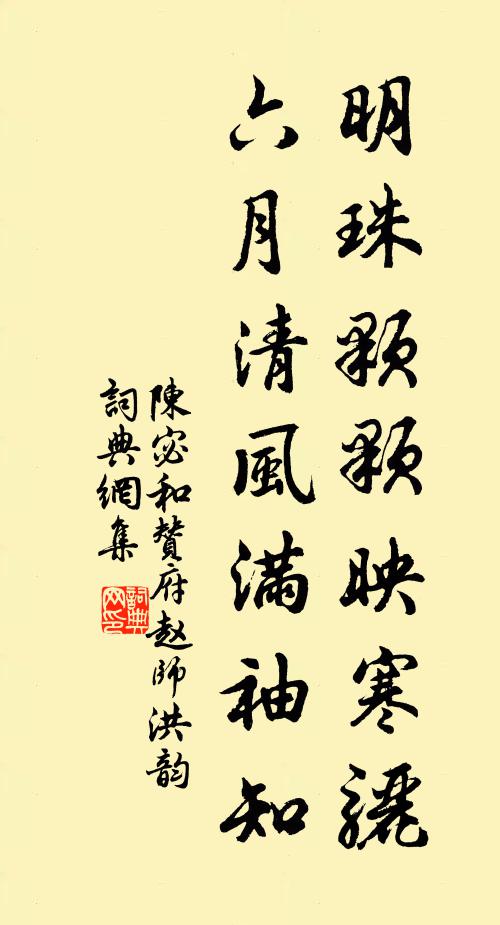 明珠顆顆映寒驪
六月清風滿袖知
陳宓和贊府赵師洪韵
詞典網集
詞典网印